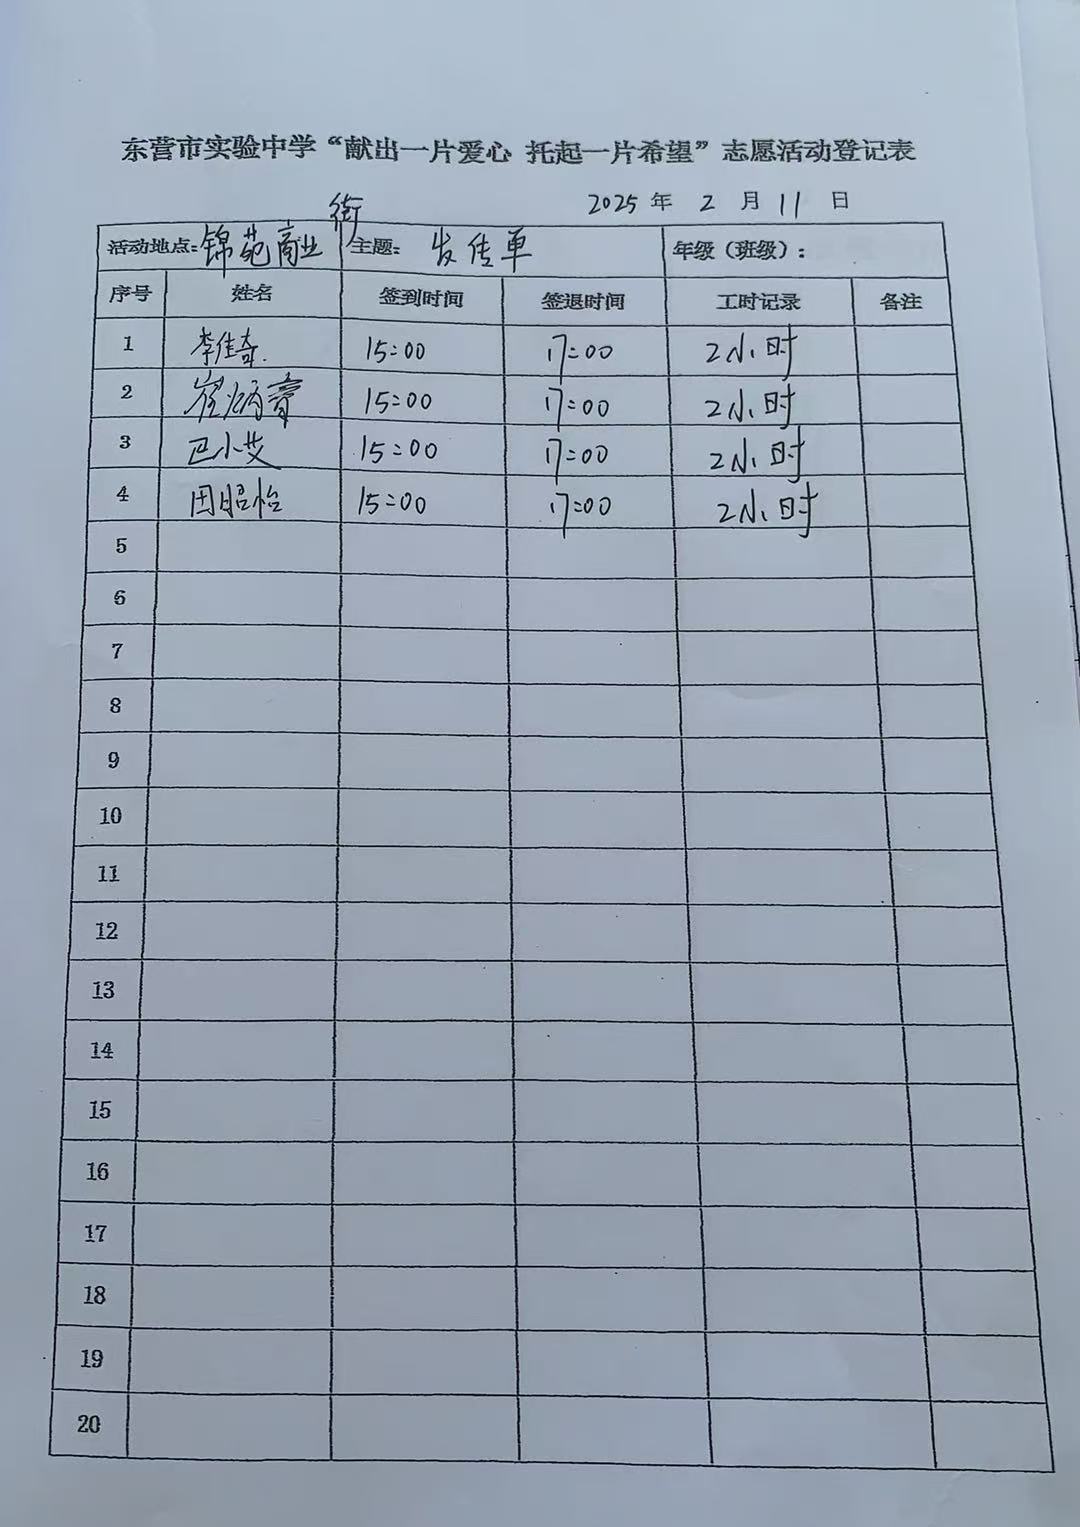 东营市实验中学“献出一片爱心 托起一片希望”志愿活动登记表
2025 年 2 月 11 日
活动地点:锦苑商业街 主题: 发传单 年级（班级）:
序号 姓名 签到时间 签退时间 工时记录 备注
1 李佳奇 15:00 17:00 2小时
2 崔炳 15:00 17:00 2小时
3 巴小艾 15:00 17:00 2小时
4 田昭怡 15:00 17:00 2小时
5
6
7
8
9
10
11
12
13
14
15
16
17
18
19
20